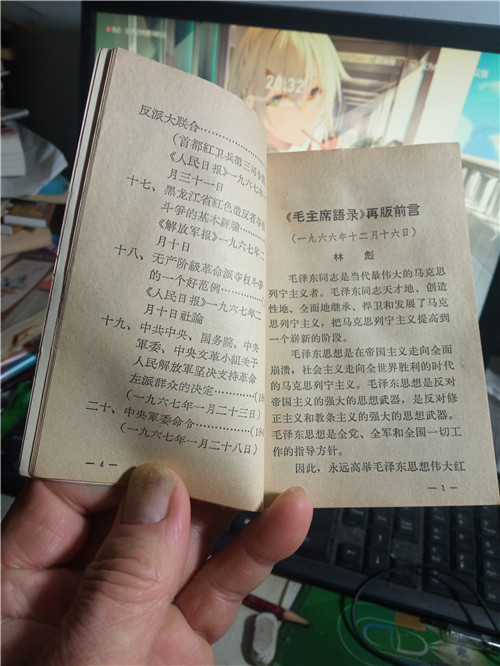 反派大联合……………
(首都紅卫兵第三司令部
《人民日报》一九六七年
月三十一日
十七、黑龙江省紅色造反者夺权
斗爭的基本經驗………
《解放軍报》一九六七年二
月十日
十八、无产阶級革命派夺权斗爭
的一个好范例…………
《人民日报》一九六七年二
月十日社論
十九、中共中央、国务院、中央
軍委、中央文革小組关于
人民解放軍坚决支持革命
左派群众的决定………(18
(一九六七年一月二十三日)
二十、中央軍委命令………(18
(一九六七年一月二十八日)
— 4 —
《毛主席語录》再版前言
(一九六六年十二月十六日)
林 彪
毛泽东同志是当代最伟大的马克思
列宁主义者。毛泽东同志天才地、创造
性地、全面地継承、捍卫和发展了马克
思列宁主义,把马克思列宁主义提高到
一个崭新的阶段。
毛泽东思想是在帝国主义走向全面
崩潰,社会主义走向全世界胜利的时代
的马克思列宁主义。毛泽东思想是反对
帝国主义的强大的思想武器,是反对修
正主义和教条主义的强大的思想武器。
毛泽东思想是全党、全軍和全国一切工
作的指导方針。
因此,永远高举毛泽东思想伟大红
— 1 —
20:32